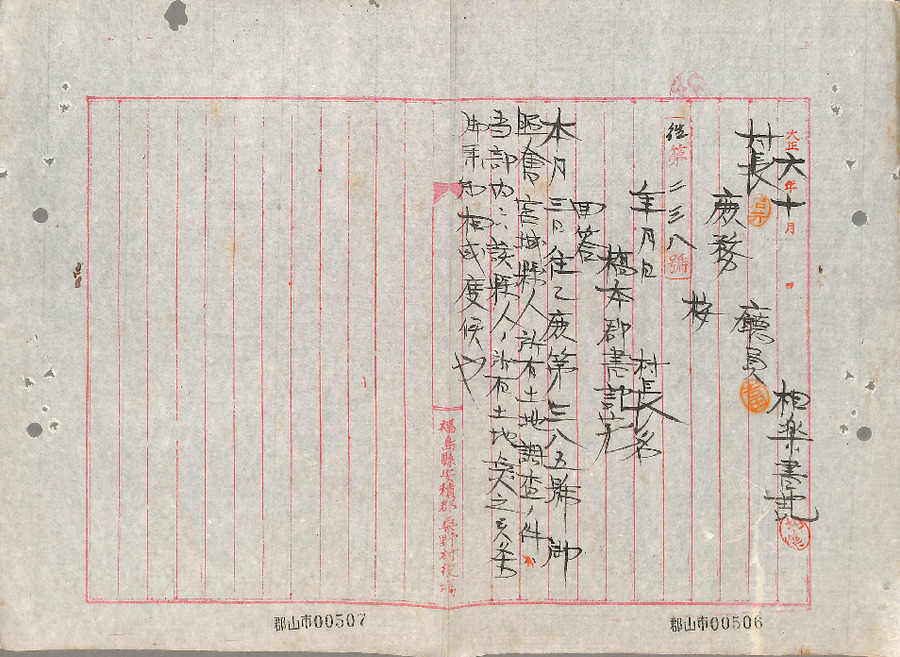 大正六年十月
相楽書記
村長
廳員
庶務
按
往第二三八號
年月日
村長名
橋本郡書記宛
回答
本月三日往乙庶第三八五號御
照會宮城縣人所有土地調査ノ件
当部内ニ該縣人ノ所有土地無之候条
御承知相成度候也
福島縣安積郡桑野村役場
郡山市00507
郡山市00506